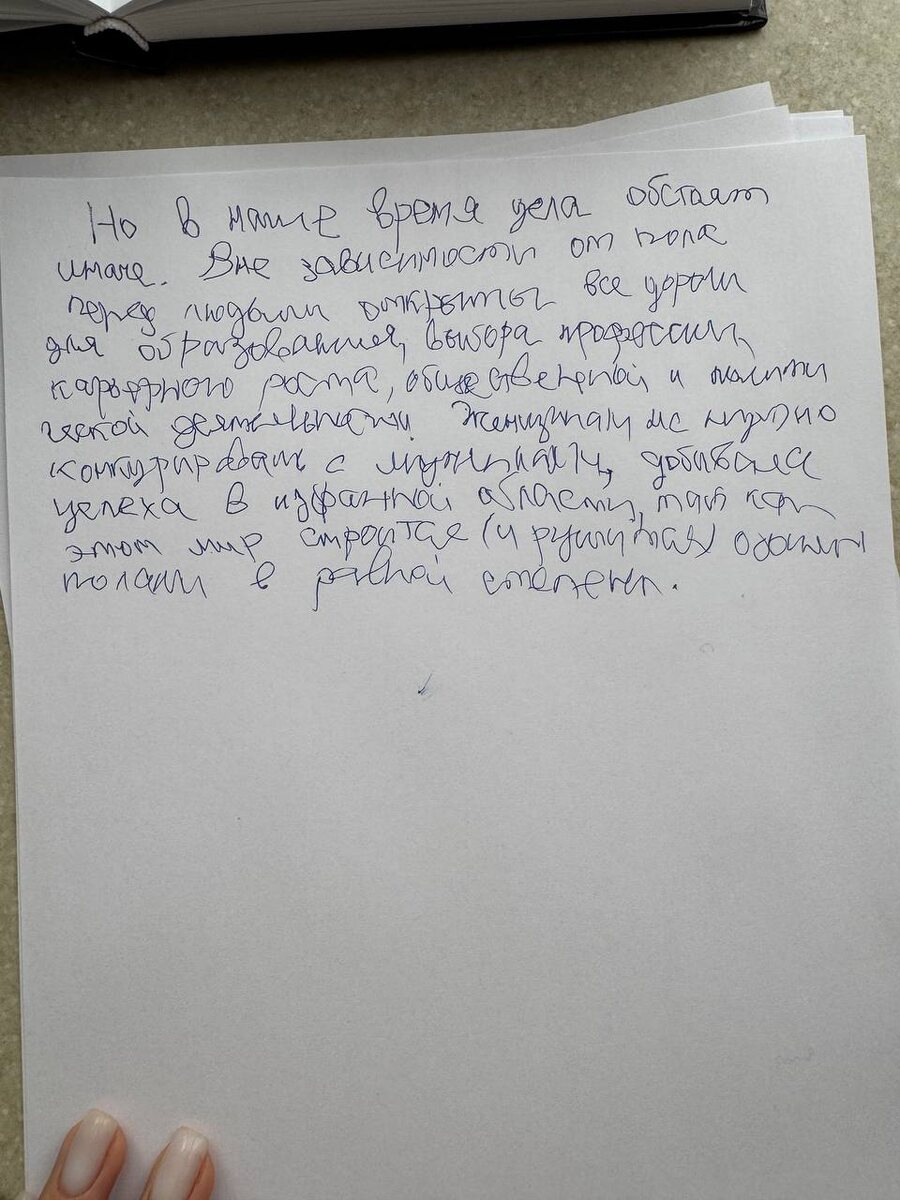 Но в наше время дела обстоят
иначе. Вне зависимости от пола
перед людьми открыты все дороги
для образования, выбора профессии,
карьерного роста, общественной и полити
ческой деятельности. Женщинам не нужно
конкурировать с мужчинами, добиваясь
успеха в избранной области, так как
этот мир строится (и рушится) обоими
полами в равной степени.